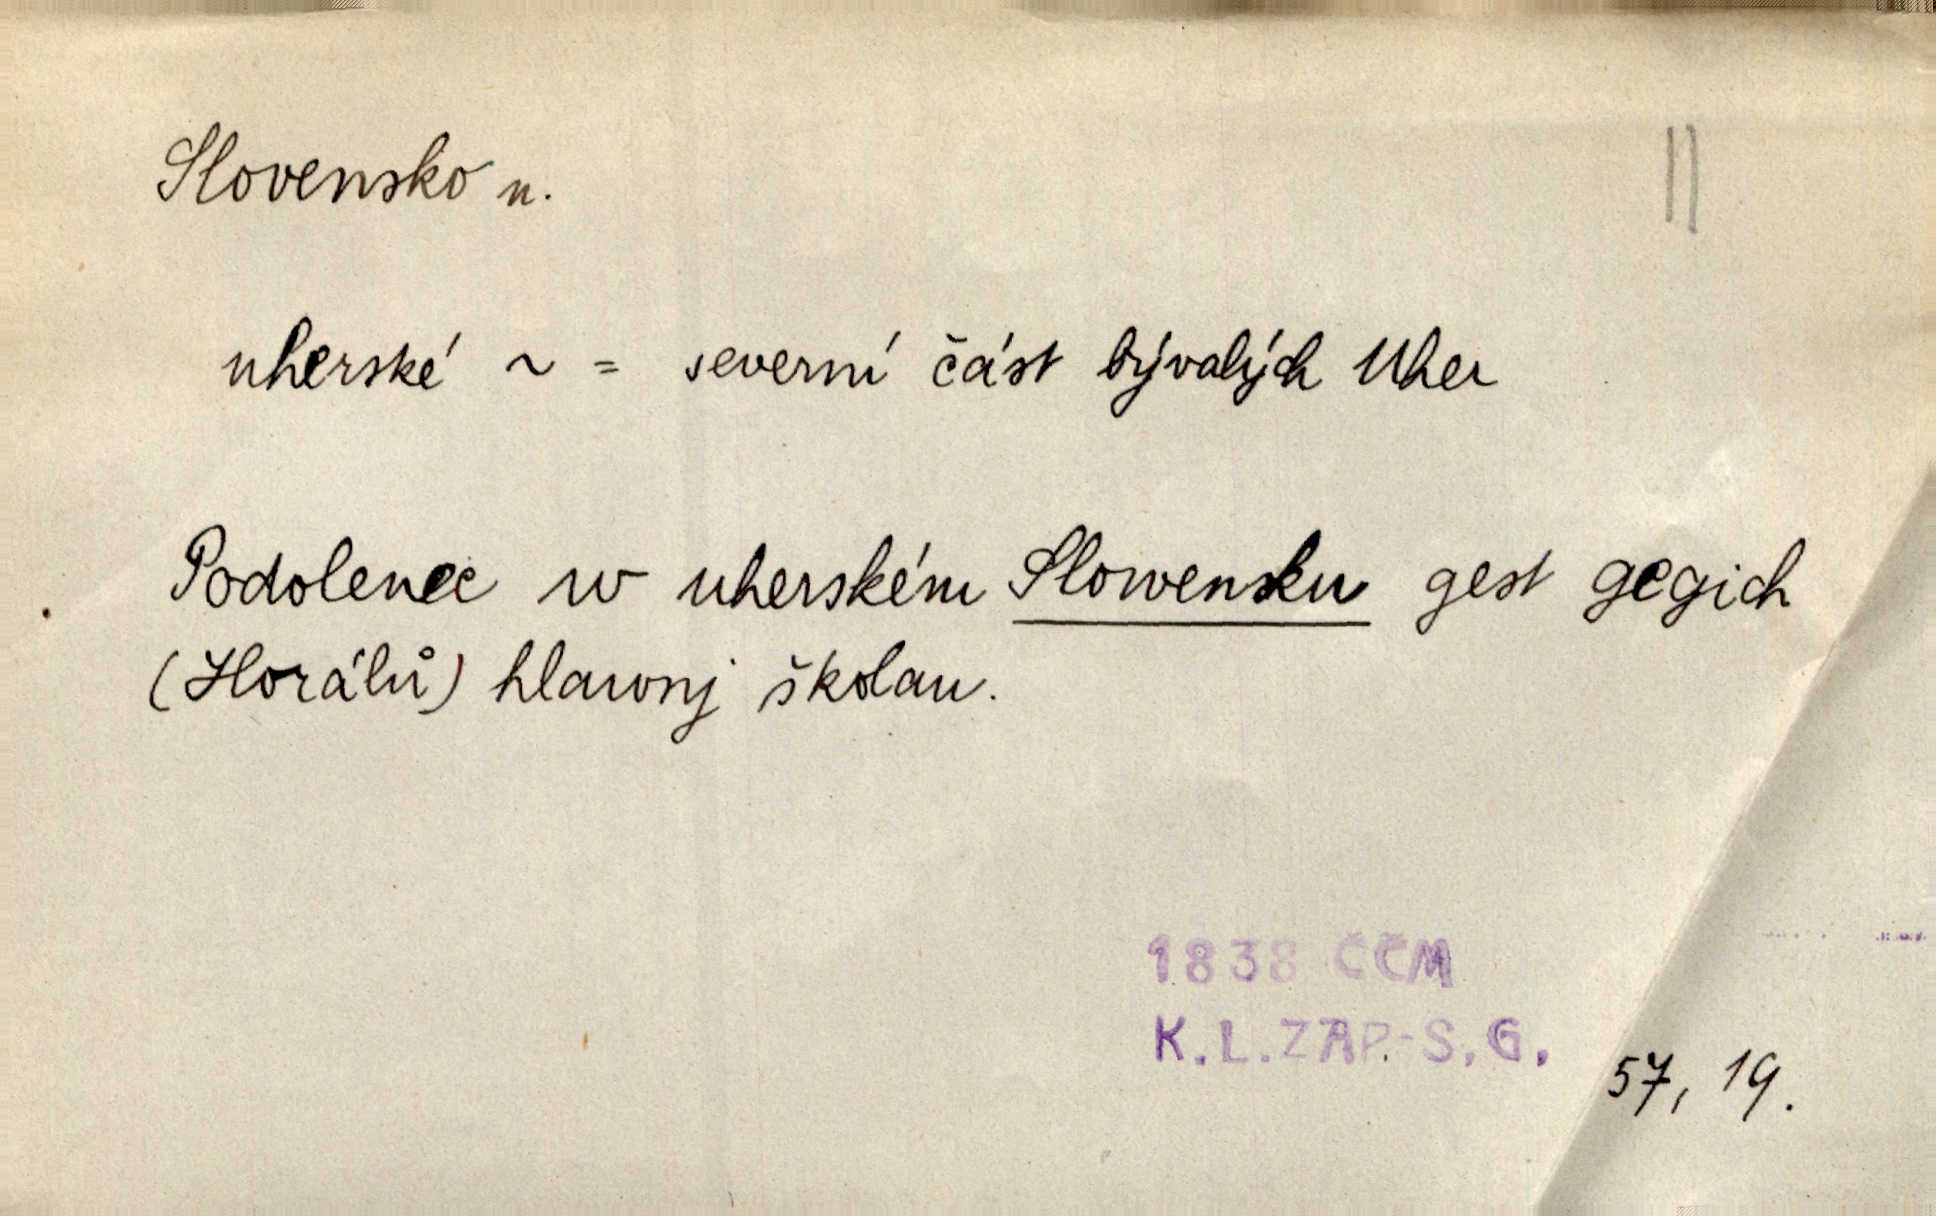 Slovensko n.
uherské ~ = severní část bývalých Uher
Podolenec w uherském Slowensku gest gegich
(Horálů) hlawnj školau.
1838 ČČM
K.L.ZAP.-S.G.
57, 19.